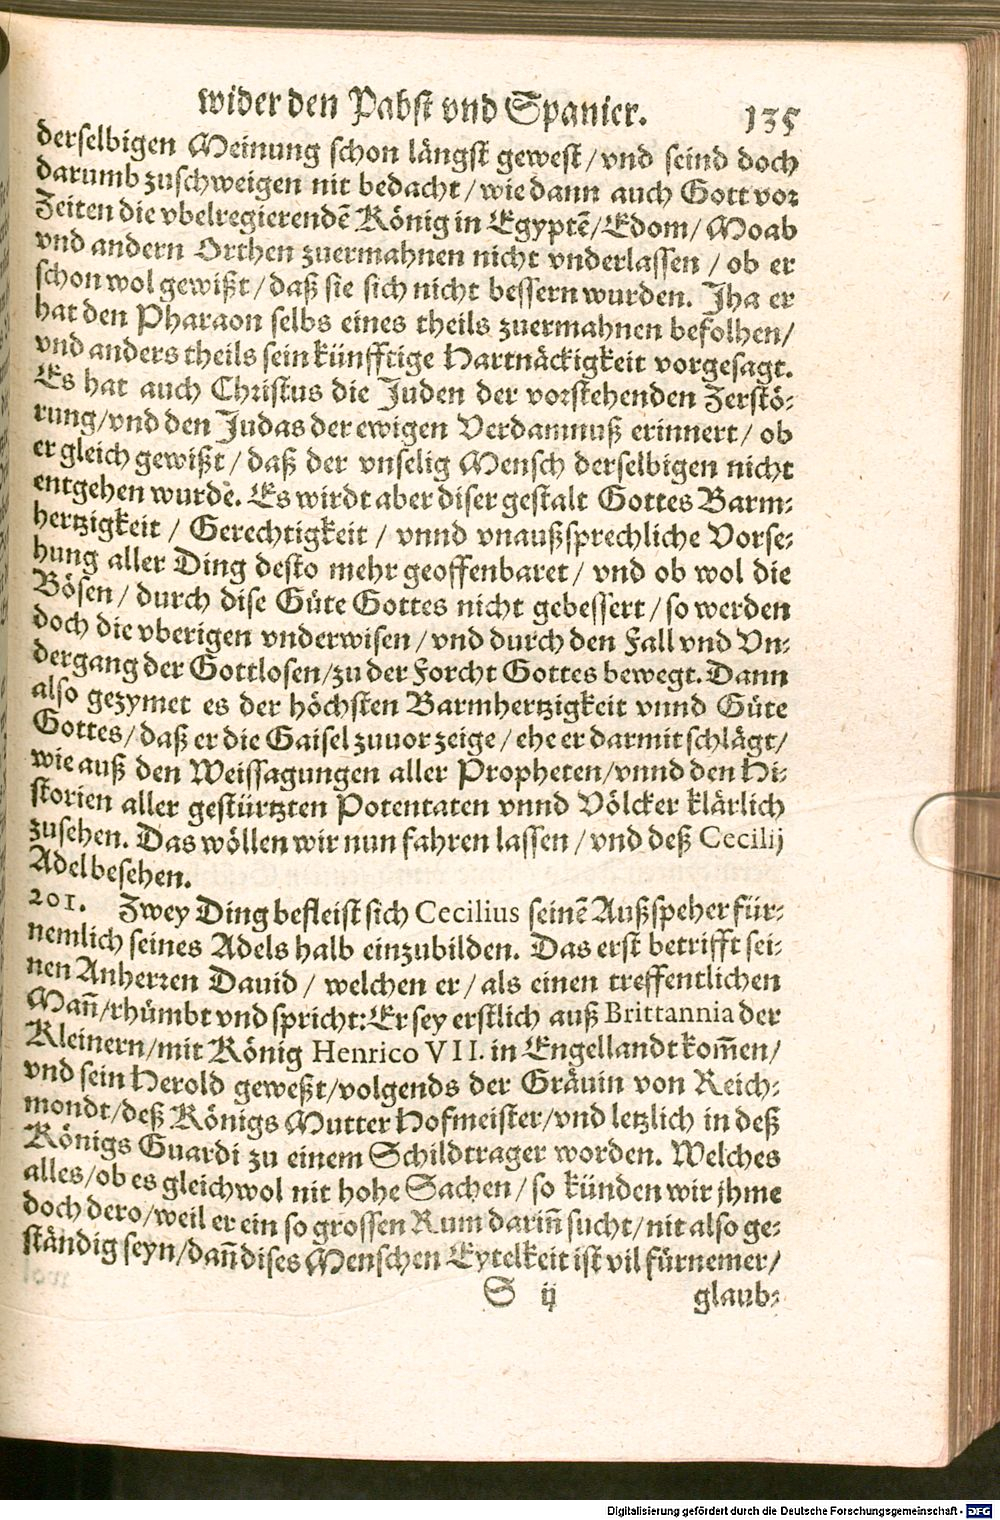 wider den Pabst vnd Spanier. 135
derselbigen Meinung schon längst gewest / vnd seind doch
darumb zuschweigen nit bedacht / wie dann auch Gott vor
Zeiten die vbelregierendẽ König in Egyptẽ / Edom / Moab
vnd andern Orthen zuermahnen nicht vnderlassen / ob er
schon wol gewißt / daß sie sich nicht bessern wurden. Jha er
hat den Pharaon selbs eines theils zuermahnen befolhen /
vnd anders theils sein künfftige Hartnäckigkeit vorgesagt.
Es hat auch Christus die Juden der vorstehenden Zerstö-
rung / vnd den Judas der ewigen Verdamnuß erinnert / ob
er gleich gewißt / daß der vnselig Mensch derselbigen nicht
entgehen wurde. Es wirdt aber diser gestalt Gottes Barm-
hertzigkeit / Gerechtigkeit / vnnd vnaußsprechliche Vorse-
hung aller Ding desto mehr geoffenbaret / vnd ob wol die
Bösen / durch dise Güte Gottes nicht gebessert / so werden
doch die vberigen vnderwisen / vnd durch den Fall vnd Vn-
dergang der Gottlosen / zu der Forcht Gottes bewegt. Dann
also gezymet es der höchsten Barmhertzigkeit vnnd Güte
Gottes / daß er die Gaisel zuuor zeige / ehe er darmit schlägt /
wie auß den Weissagungen aller Propheten / vnnd den Hi-
storien aller gestürtzten Potentaten vnnd Völcker klärlich
zusehen. Das wöllen wir nun fahren lassen / vnd deß Cecilij
Adel besehen.
201. Zwey Ding befleist sich Cecilius seinẽ Außspeher für-
nemlich seines Adels halb einzubilden. Das erst betrifft sei-
nen Anherren Dauid / welchen er / als einen treffentlichen
Mañ / rhümbt vnd spricht: Er sey erstlich auß Brittannia der
Kleinern / mit König Henrico VII. in Engellandt kom̃en /
vnd sein Herold geweßt / volgends der Gräuin von Reich-
mondt / deß Königs Mutter Hofmeister / vnd letzlich in deß
Königs Guardi zu einem Schildtrager worden. Welches
alles / ob es gleichwol nit hohe Sachen / so künden wir jhme
doch dero / weil er ein so grossen Rum dariñ sucht / nit also ge-
ständig seyn / dañ dises Menschen Eytelkeit ist vil fürnemer /
S ij glaub-
Digitalisierung gefördert durch die Deutsche Forschungsgemeinschaft - DFG